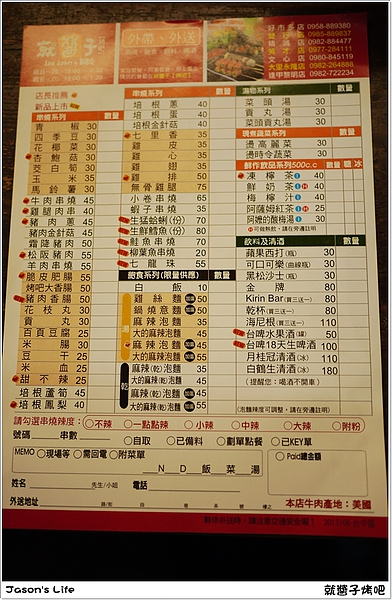 就醬子
Jou Jan's BBQ
外帶、外送
好市多店 0958-889380
0982-884477
英才店 0977-284111
文心店 0980-845119
大里永隆店 0982-264888
逢甲黎明店 0982-722234
店長推薦
新品上市
串燒系列 數量
青椒 30
四季豆 30
花椰菜 30
杏鮑菇 30
茭白筍 30
玉米 35
馬鈴薯 30
牛肉串燒 45
雞腿肉串 40
豬肉蔥 45
豬肉金針菇 45
霜降豬肉 50
松阪豬肉 55
羊肉串燒 55
脆皮肥腸 55
烤吧大香腸 50
豬肉香腸 50
花枝丸 30
貢丸 30
百頁豆腐 25
米腸 30
豆干 25
米血 25
甜不辣 25
培根蘆筍 45
培根鳳梨 40
串燒系列 數量
培根蔥 40
培根蛋 40
培根金針菇 40
七里香 35
雞皮 35
雞心 35
雞翅 35
雞排 50
無骨雞腿 75
小卷串燒 65
蝦子串燒 65
生猛蛤蜊(份) 70
生鮮鱈魚(份) 80
鮭魚串燒 70
柳葉魚串燒 70
七龍珠 55
飽食系列(限量供應) 數量
白飯 10
雞絲麵 50
鍋燒意麵 50
麻辣泡麵 50
大的麻辣泡麵 55
大的麻辣泡麵 55
麻辣(乾)泡麵 35
大的麻辣(乾)泡麵 45
麻辣(乾)泡麵 45
大的麻辣(乾)泡麵 55
湯物系列 數量
菜頭湯 30
貢丸湯 30
菜頭貢丸湯 30
現煮蔬菜系列 數量
燙高麗菜 30
燙時令蔬菜 30
鮮作飲品系列500c.c 數量 糖 冰
凍檸茶 40
鮮奶茶 40
梅檸汁 40
阿薩姆紅茶 25
可做熱飲,請在旁邊註明
飲料及清酒 數量
蘋果西打(瓶) 30
可口可樂(曲線瓶) 30
黑松沙士(瓶) 30
金牌 80
Kirin Bar(買三送一) 80
乾杯(買三送一) 80
海尼根(買三送一) 110
台啤水果酒(罐) 50
台啤18天生啤酒 100
月桂冠清酒(冰) 110
白鶴生清酒(冰) 180
(提醒您:喝酒不開車)
(泡麵辣度可調整,請在旁註明)
請勾選串燒辣度: ○不辣 ○一點點辣 ○小辣 ○中辣 ○大辣 ○附粉
號碼 串數 ○自取 ○已備料 ○劃單點餐 ○已KEY單
MEMO ○現場等 ○需回電 ○附菜單 ○Paid總金額
N D 飯 菜 湯
姓名 先生/小姐 電話
外送地址
本店牛肉產地:美國
Jason's Life
就醬子烤吧